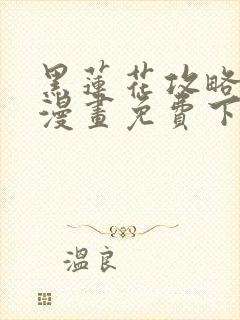 黑蓮花攻略
漫畫免費下
溫良